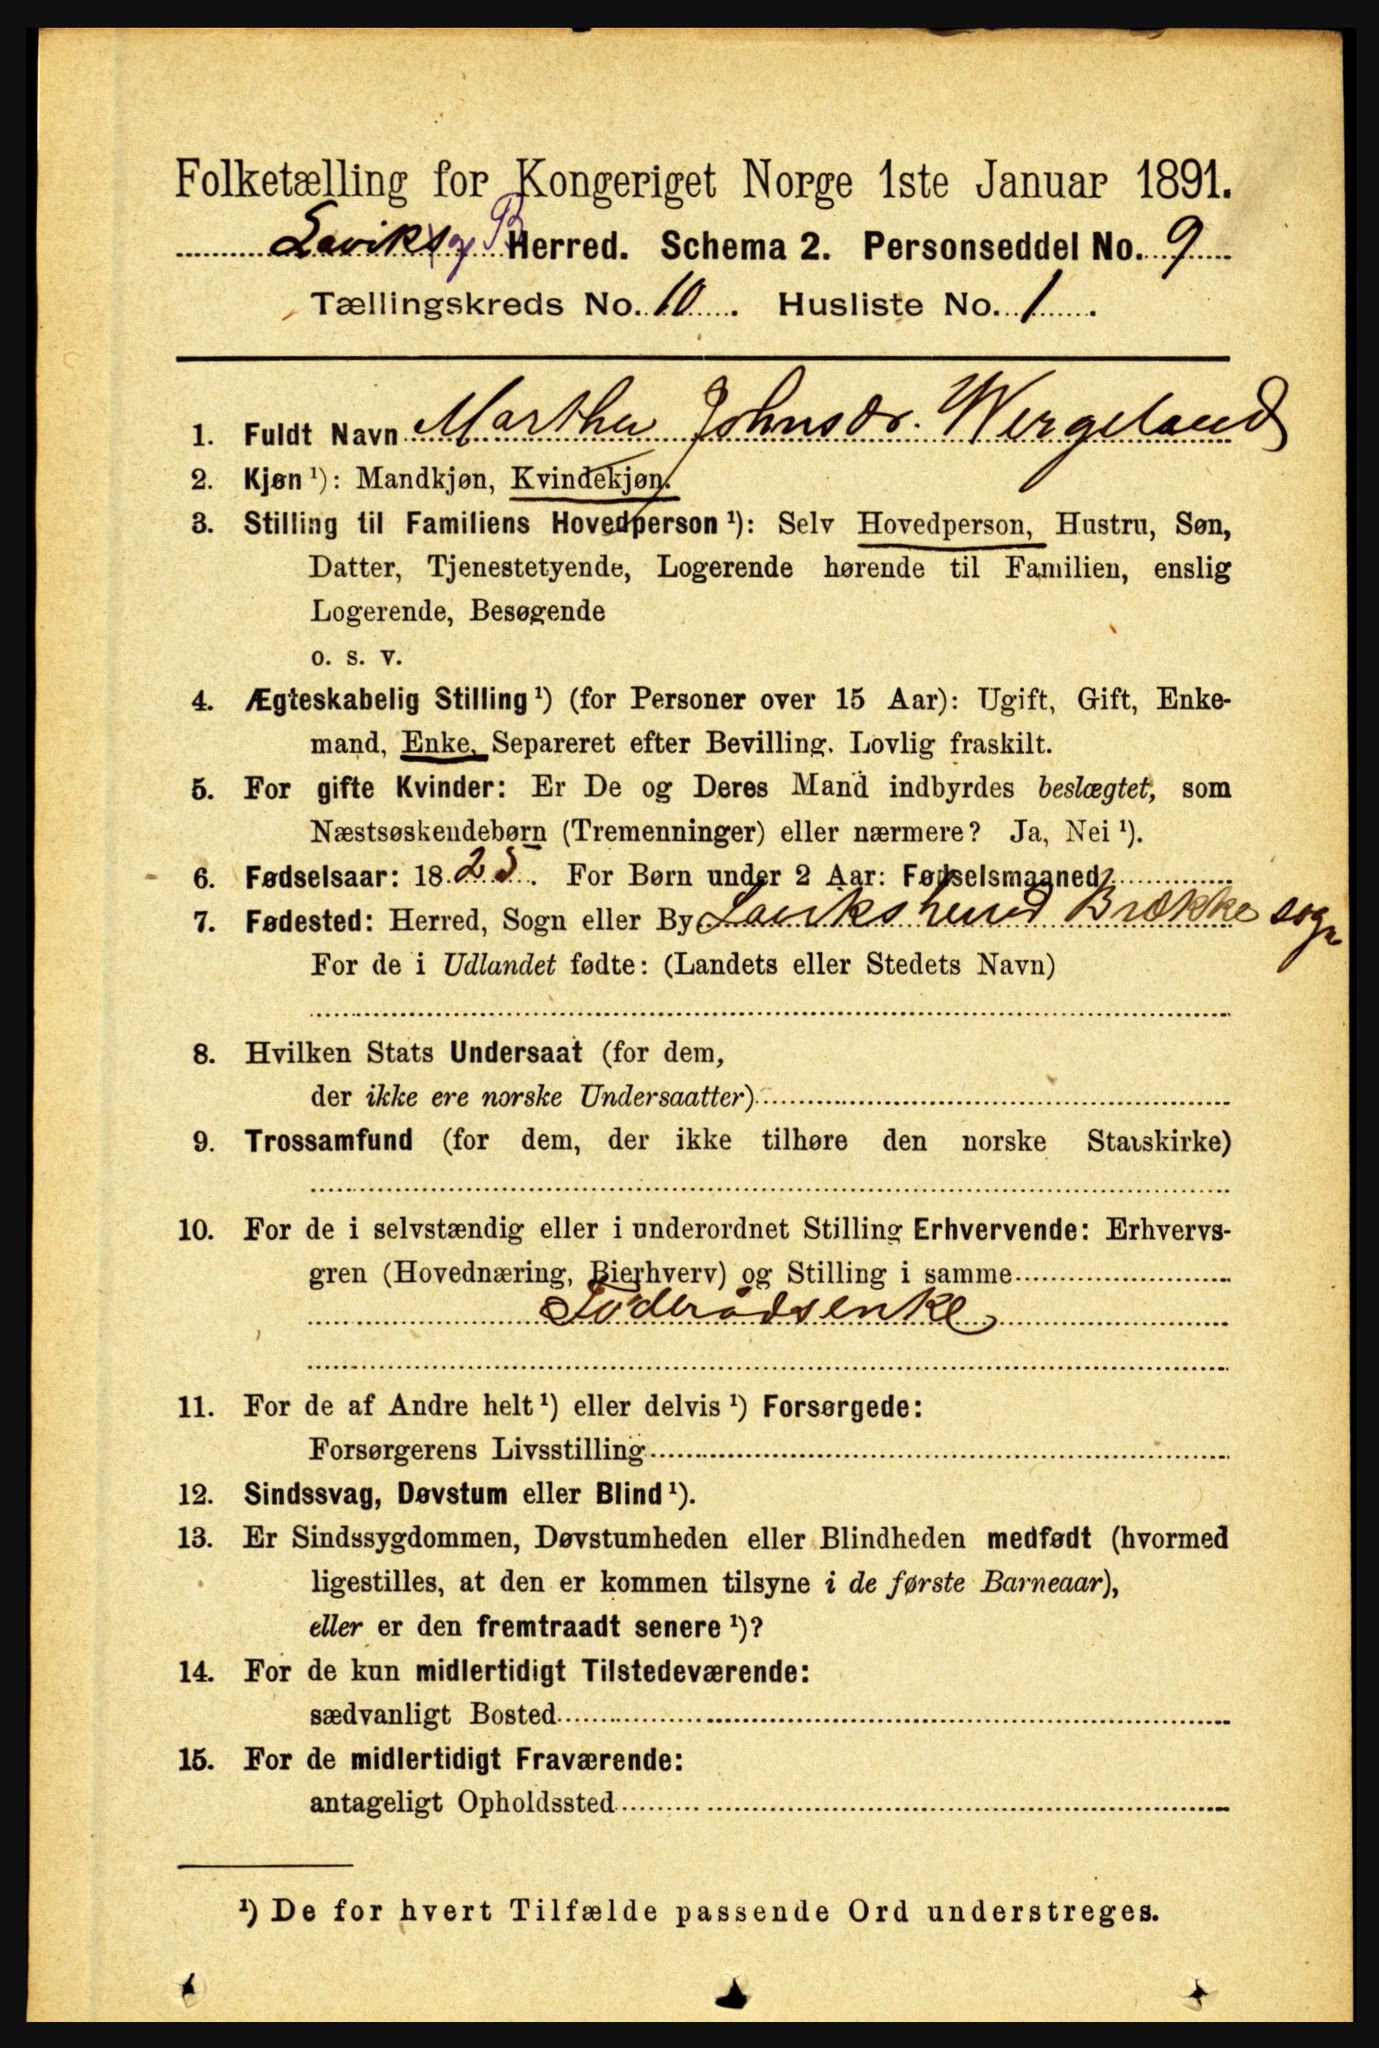 Folketælling for Kongeriget Norge 1ste Januar 1891.
Laviks og B Herred. Schema 2. Personseddel No. 9
Tællingskreds No. 10. Husliste No. 1.
1. Fuldt Navn Martha Johnsdr. Wergeland
2. Kjøn ¹): Mandkjøn, Kvindekjøn.
3. Stilling til Familiens Hovedperson ¹): Selv Hovedperson, Hustru, Søn,
Datter, Tjenestetyende, Logerende hørende til Familien, enslig
Logerende, Besøgende
o. s. v.
4. Ægteskabelig Stilling ¹) (for Personer over 15 Aar): Ugift, Gift, Enke-
mand, Enke, Separeret efter Bevilling. Lovlig fraskilt.
5. For gifte Kvinder: Er De og Deres Mand indbyrdes beslægtet, som
Næstsøskendebørn (Tremenninger) eller nærmere? Ja, Nei ¹).
6. Fødselsaar: 1825. For Børn under 2 Aar: Fødselsmaaned
7. Fødested: Herred, Sogn eller By Laviks herred Brække sogn
For de i Udlandet fødte: (Landets eller Stedets Navn)
8. Hvilken Stats Undersaat (for dem,
der ikke ere norske Undersaatter)
9. Trossamfund (for dem, der ikke tilhøre den norske Statskirke)
10. For de i selvstændig eller i underordnet Stilling Erhvervende: Erhvervs-
gren (Hovednæring, Bierhverv) og Stilling i samme
Føderådsenke
11. For de af Andre helt ¹) eller delvis ¹) Forsørgede:
Forsørgerens Livsstilling
12. Sindssvag, Døvstum eller Blind ¹).
13. Er Sindssygdommen, Døvstumheden eller Blindheden medfødt (hvormed
ligestilles, at den er kommen tilsyne i de første Barneaar),
eller er den fremtraadt senere ¹)?
14. For de kun midlertidigt Tilstedeværende:
sædvanligt Bosted
15. For de midlertidigt Fraværende:
antageligt Opholdssted
¹) De for hvert Tilfælde passende Ord understreges.